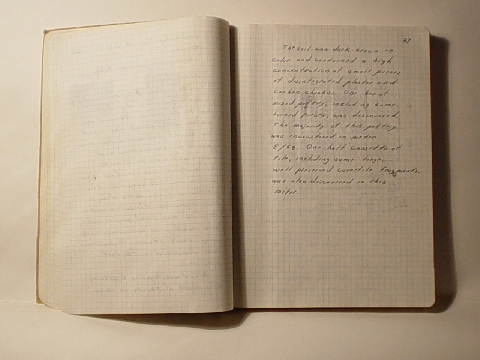 The soil was dark brown in
color and contained a high
concentration of small pieces
of disintegrated plaster and
carbon chunks. One box of
mixed pottery, including some
burned pieces, was discovered.
The majority of this pottery
was encountered in meter
E/50. One half cassette of
tile, including some large,
well preserved cover tile fragments,
was also discovered in this
meter.